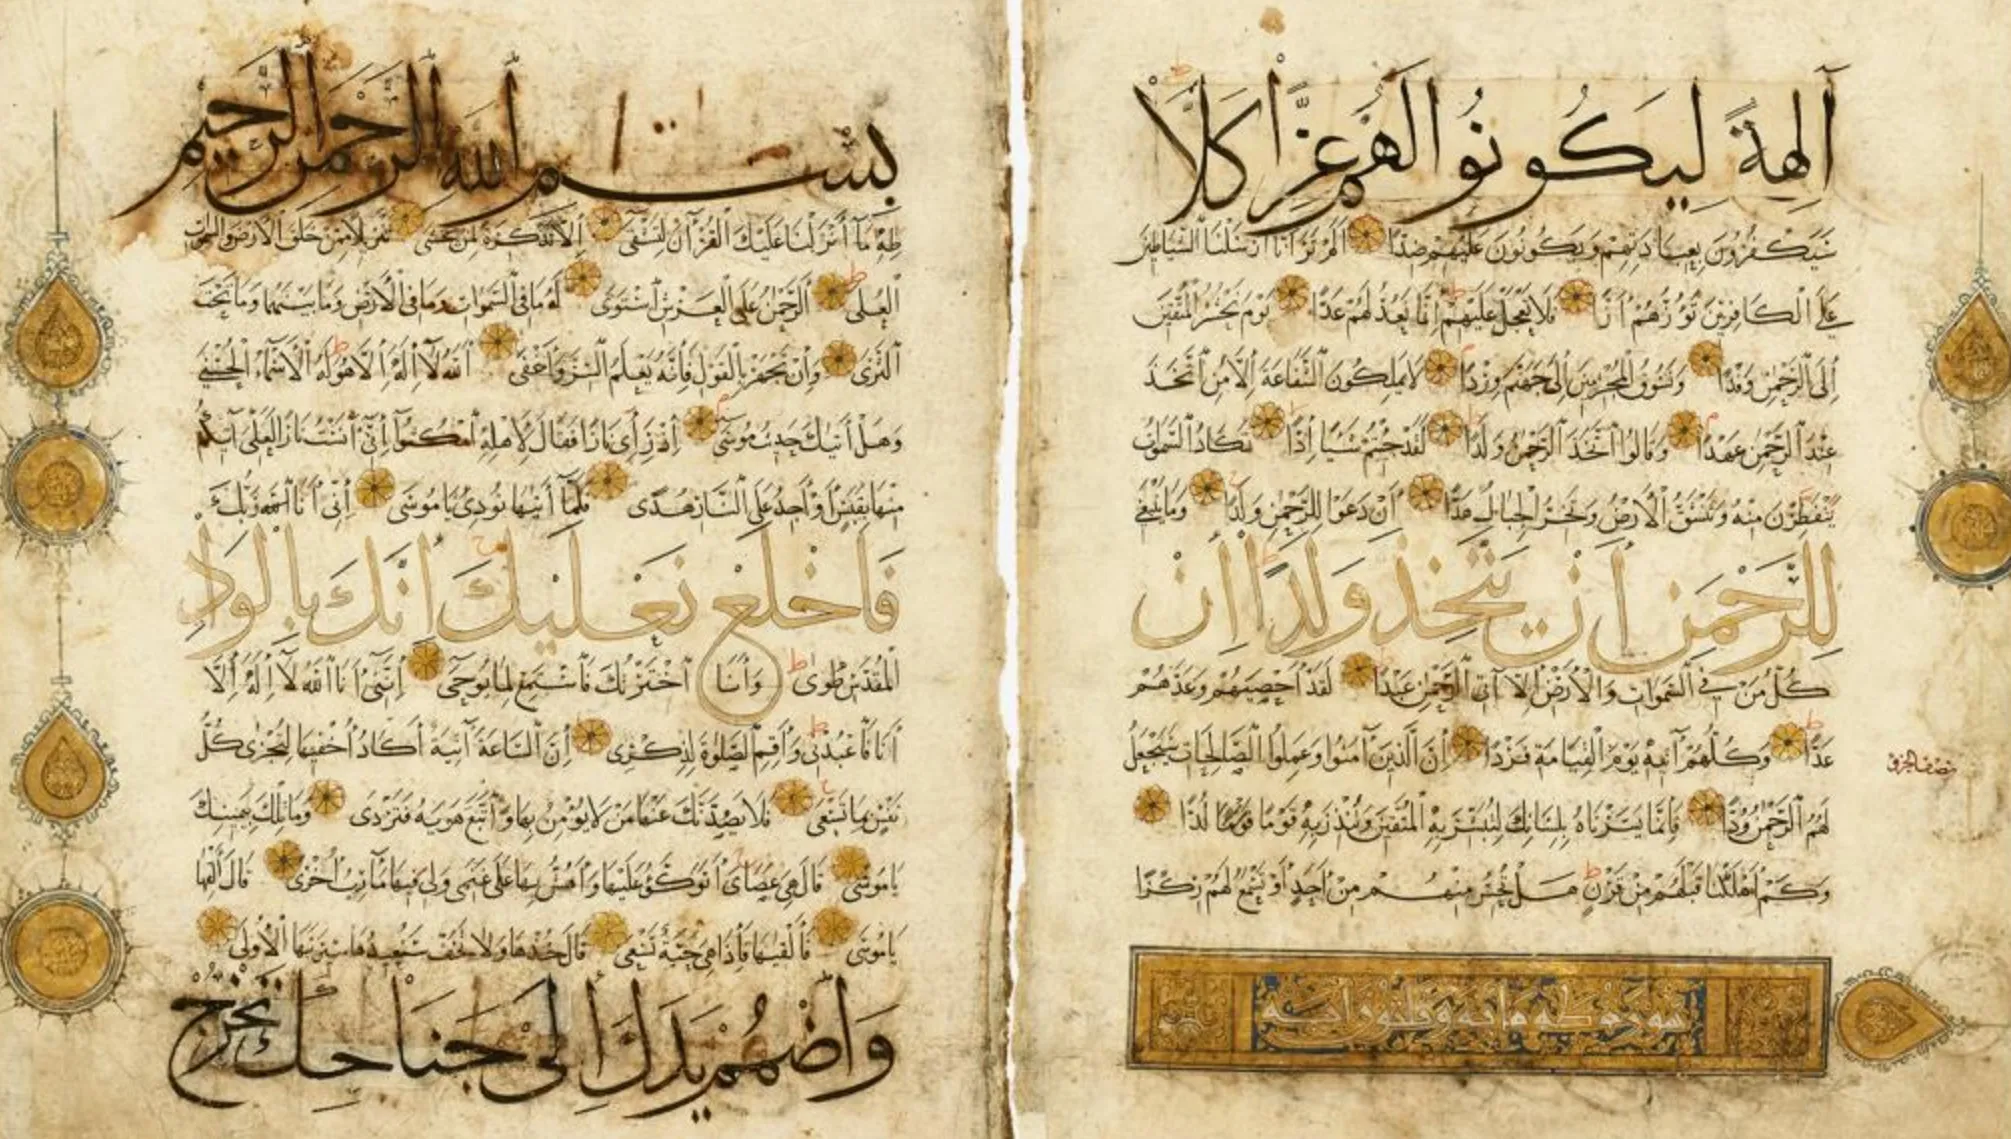 آلِهَةً لِيَكُونُوا لَهُمْ عِزًّا كَلَّا
سَيَكْفُرُونَ بِعِبَادَتِهِمْ وَيَكُونُونَ عَلَيْهِمْ ضِدًّا أَلَمْ تَرَ أَنَّا أَرْسَلْنَا الشَّيَاطِينَ
عَلَى الْكَافِرِينَ تَؤُزُّهُمْ أَزًّا فَلَا تَعْجَلْ عَلَيْهِمْ إِنَّمَا نَعُدُّ لَهُمْ عَدًّا يَوْمَ نَحْشُرُ الْمُتَّقِينَ
إِلَى الرَّحْمٰنِ وَفْدًا وَنَسُوقُ الْمُجْرِمِينَ إِلَى جَهَنَّمَ وِرْدًا لَا يَمْلِكُونَ الشَّفَاعَةَ إِلَّا مَنِ اتَّخَذَ
عِنْدَ الرَّحْمٰنِ عَهْدًا وَقَالُوا اتَّخَذَ الرَّحْمٰنُ وَلَدًا لَقَدْ جِئْتُمْ شَيْئًا إِدًّا تَكَادُ السَّمٰوَاتُ
يَنْفَطِرْنَ مِنْهُ وَتَنْشَقُّ الْأَرْضُ وَتَخِرُّ الْجِبَالُ هَدًّا أَنْ دَعَوْا لِلرَّحْمٰنِ وَلَدًا وَمَا يَنْبَغِي
لِلرَّحْمٰنِ أَنْ يَتَّخِذَ وَلَدًا إِنْ
كُلُّ مَنْ فِي السَّمٰوَاتِ وَالْأَرْضِ إِلَّا آتِي الرَّحْمٰنِ عَبْدًا لَقَدْ أَحْصٰيهُمْ وَعَدَّهُمْ
عَدًّا وَكُلُّهُمْ آتِيهِ يَوْمَ الْقِيَامَةِ فَرْدًا إِنَّ الَّذِينَ آمَنُوا وَعَمِلُوا الصَّالِحَاتِ سَيَجْعَلُ
نصف الجزو
لَهُمُ الرَّحْمٰنُ وُدًّا فَإِنَّمَا يَسَّرْنَاهُ بِلِسَانِكَ لِتُبَشِّرَ بِهِ الْمُتَّقِينَ وَتُنْذِرَ بِهِ قَوْمًا قَوْمًا لُدًّا
وَكَمْ أَهْلَكْنَا قَبْلَهُمْ مِنْ قَرْنٍ هَلْ تُحِسُّ مِنْهُمْ مِنْ أَحَدٍ أَوْ تَسْمَعُ لَهُمْ رِكْزًا
سورة طه مائة وثلثون آية
بِسْمِ اللهِ الرَّحْمٰنِ الرَّحِيمِ
طٰهٰ مَا أَنْزَلْنَا عَلَيْكَ الْقُرْآنَ لِتَشْقَى إِلَّا تَذْكِرَةً لِمَنْ يَخْشَى تَنْزِيلًا مِمَّنْ خَلَقَ الْأَرْضَ وَالسَّمٰوَاتِ
الْعُلَى الرَّحْمٰنُ عَلَى الْعَرْشِ اسْتَوَى لَهُ مَا فِي السَّمٰوَاتِ وَمَا فِي الْأَرْضِ وَمَا بَيْنَهُمَا وَمَا تَحْتَ
الثَّرَى وَإِنْ تَجْهَرْ بِالْقَوْلِ فَإِنَّهُ يَعْلَمُ السِّرَّ وَأَخْفَى اللهُ لَا إِلٰهَ إِلَّا هُوَ لَهُ الْأَسْمَاءُ الْحُسْنَى
وَهَلْ أَتٰيكَ حَدِيثُ مُوسَى إِذْ رَأَى نَارًا فَقَالَ لِأَهْلِهِ امْكُثُوا إِنِّي آنَسْتُ نَارًا لَعَلِّي آتِيكُمْ
مِنْهَا بِقَبَسٍ أَوْ أَجِدُ عَلَى النَّارِ هُدًى فَلَمَّا أَتٰيهَا نُودِيَ يَا مُوسَى إِنِّي أَنَا رَبُّكَ
فَاخْلَعْ نَعْلَيْكَ إِنَّكَ بِالْوَادِ
الْمُقَدَّسِ طُوًى وَأَنَا اخْتَرْتُكَ فَاسْتَمِعْ لِمَا يُوحَى إِنَّنِي أَنَا اللهُ لَا إِلٰهَ إِلَّا
أَنَا فَاعْبُدْنِي وَأَقِمِ الصَّلٰوةَ لِذِكْرِي إِنَّ السَّاعَةَ آتِيَةٌ أَكَادُ أُخْفِيهَا لِتُجْزَى كُلُّ
نَفْسٍ بِمَا تَسْعَى فَلَا يَصُدَّنَّكَ عَنْهَا مَنْ لَا يُؤْمِنُ بِهَا وَاتَّبَعَ هَوٰيهُ فَتَرْدَى وَمَا تِلْكَ بِيَمِينِكَ
يَا مُوسَى قَالَ هِيَ عَصَايَ أَتَوَكَّؤُ عَلَيْهَا وَأَهُشُّ بِهَا عَلَى غَنَمِي وَلِيَ فِيهَا مَآرِبُ أُخْرَى قَالَ أَلْقِهَا
يَا مُوسَى فَأَلْقٰيهَا فَإِذَا هِيَ حَيَّةٌ تَسْعَى قَالَ خُذْهَا وَلَا تَخَفْ سَنُعِيدُهَا سِيرَتَهَا الْأُولَى
وَاضْمُمْ يَدَكَ إِلَى جَنَاحِكَ تَخْرُجْ